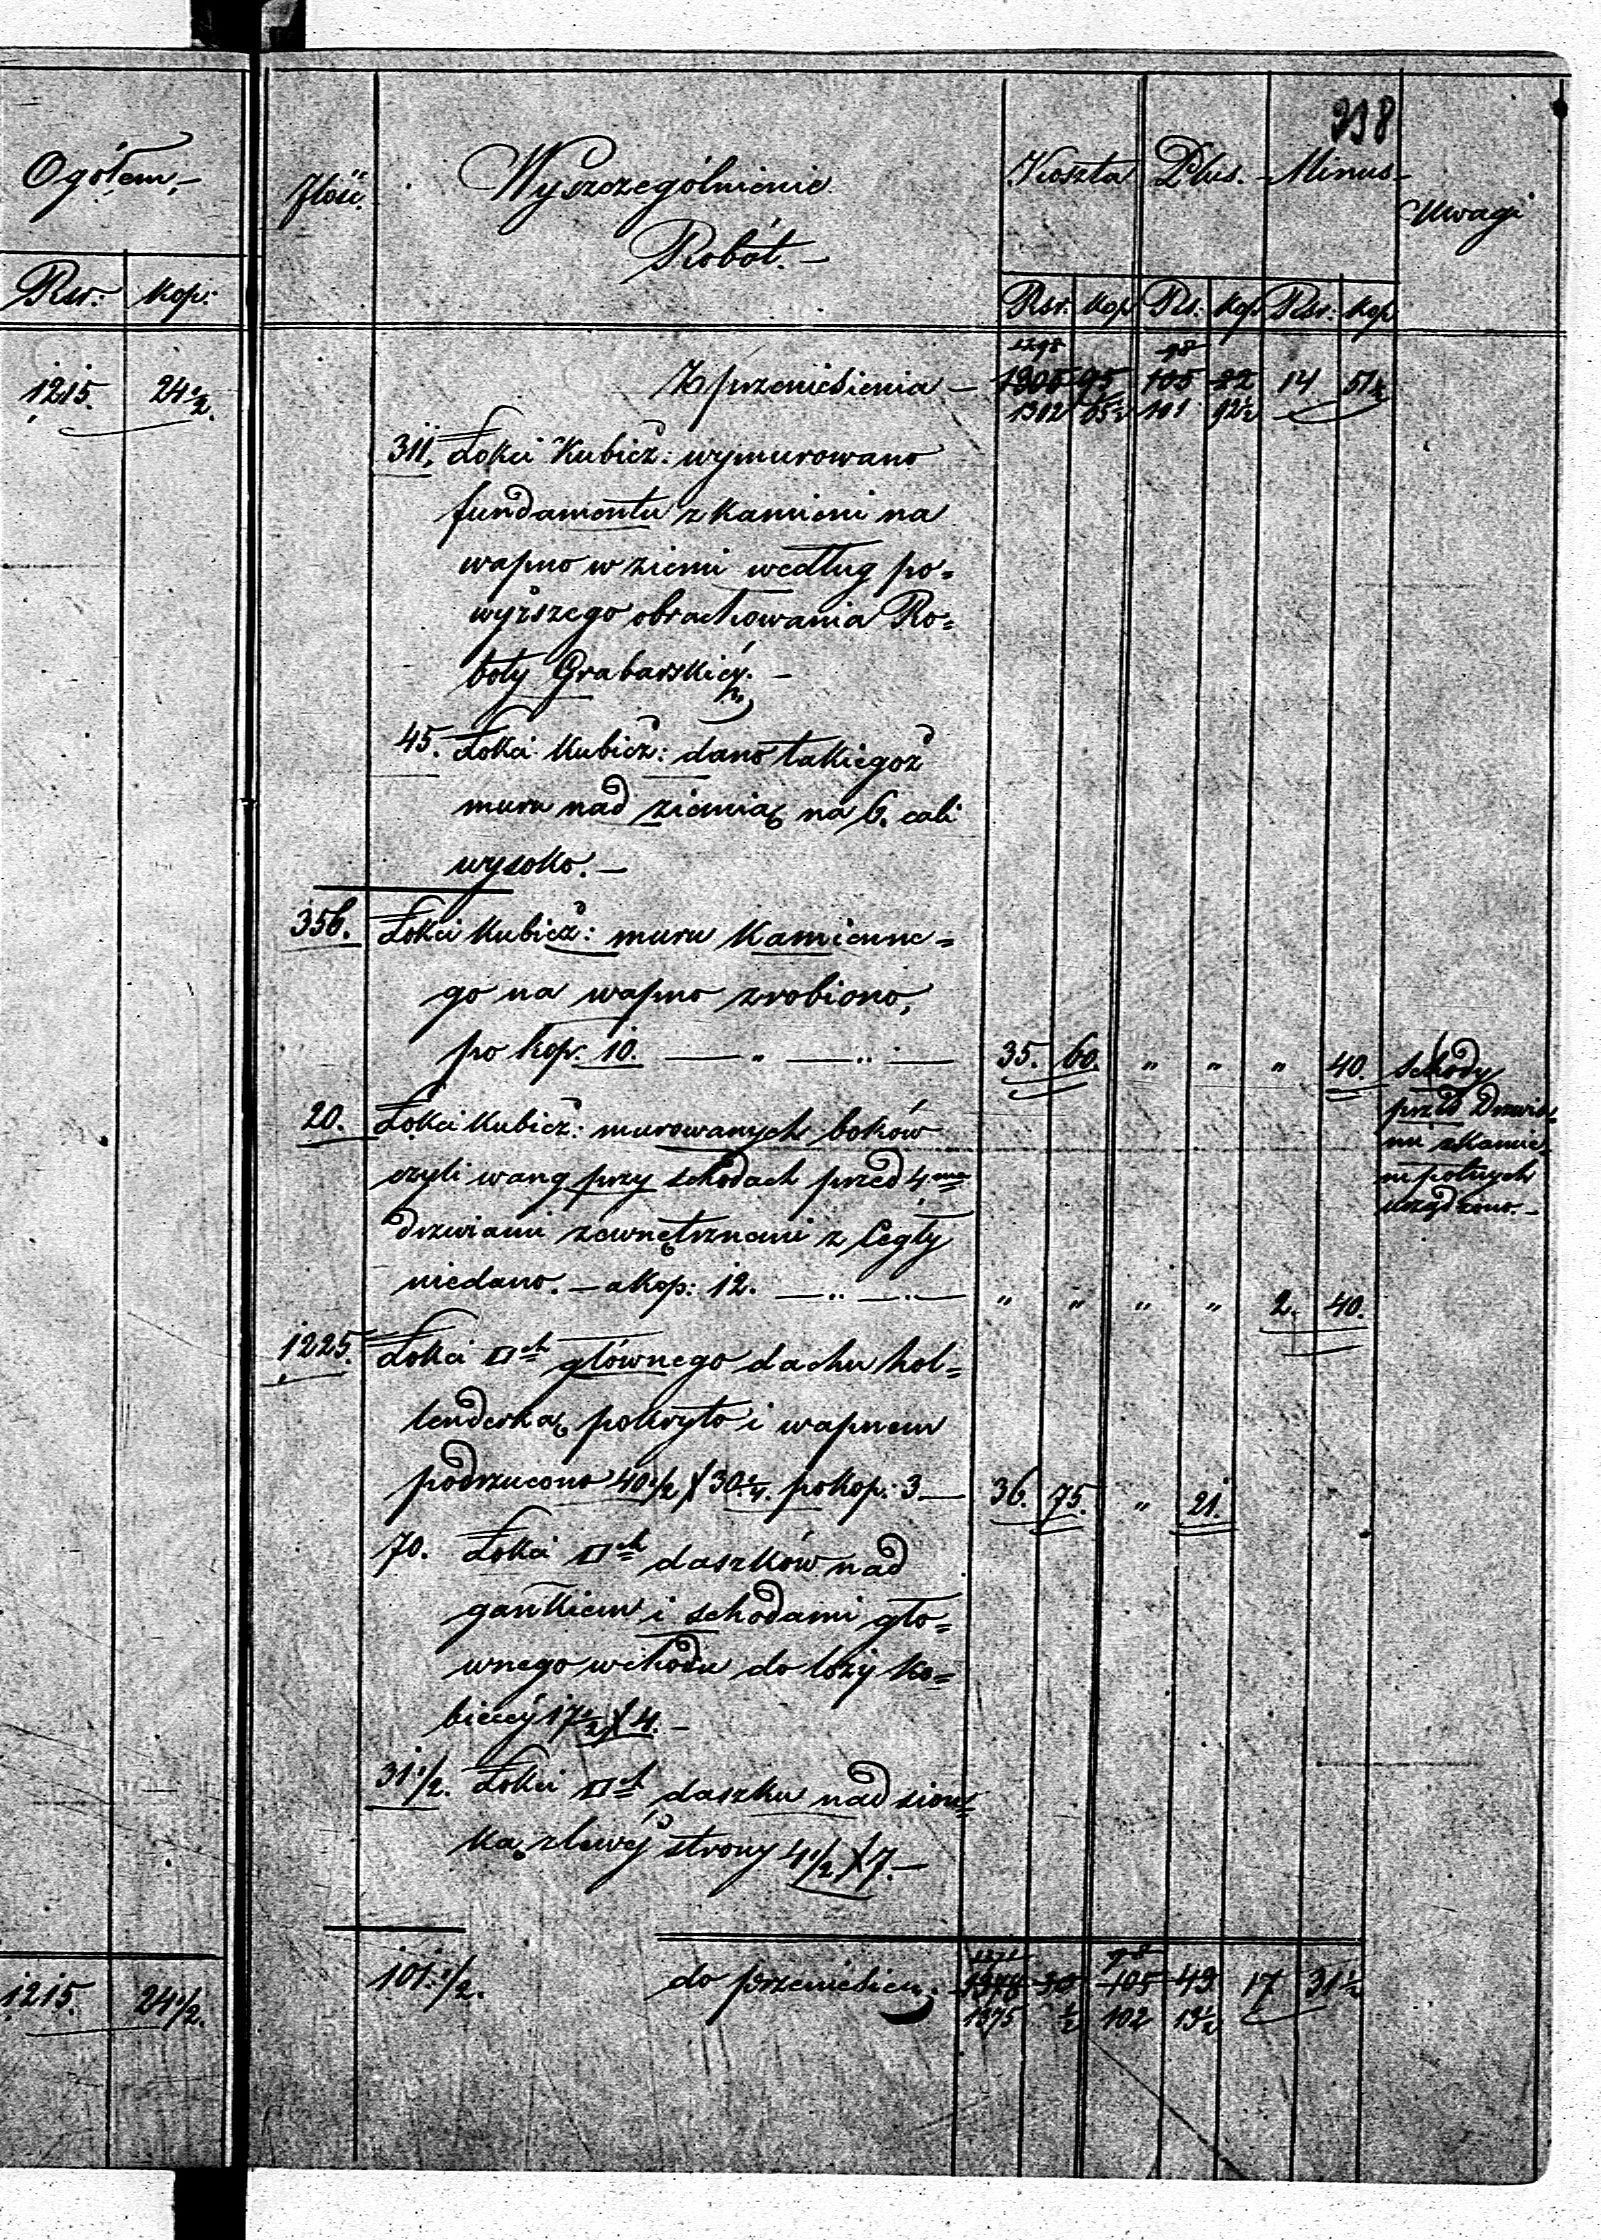 Ogółem,-
Rsr: kop:
1215. 24½.
1215. 24½.
398
Ilość. Wyszczególnienie Robót.- Koszta Plus.- Minus- Uwagi
Rsr: kop Rs: kop Rsr: kop
1298 98
Z przeniesienia - 1305 95 105 22 14 51½
1302 65½ 101 92½
311. Łokci Kubicz: wymurowano
fundamentu z kamieni na
wapno w ziemi według po=
wyższego obrachowania Ro=
boty Grabarskiéj.-
45. Łokci Kubicz: dano takiegoż
muru nad ziemią na 6. cali
wysoko.-
356. Łokci Kubicz: muru Kamienne=
go na wapno zrobiono,
po kop. 10. 35. 60. " " " 40.
schody
przed Drzwia=
mi z kamie=
ni polnych
urządzono.-
20. Łokci Kubicz: murowanych boków
czyli wang przy schodach przed 4ma
drzwiami zewnętrznemi z Cegły
niedano.- a kop: 12. " " " " 2. 40.
1225. Łokci □ch głównego dachu hol=
lenderką pokryto i wapnem
podrzucono 40½ X 30¼. po kop: 3 36. 75. " 21.
70. Łokci □ch daszków nad
gankiem i schodami głó=
wnego wchodu do loży ko=
biecéj 17½ X 4.-
31½. Łokci □ch daszku nad sion=
ką z lewéj strony 4½ X 7.-
101½. do przeniesien: 1378 30 105 43 17 31½
1375 ½ 102 13½